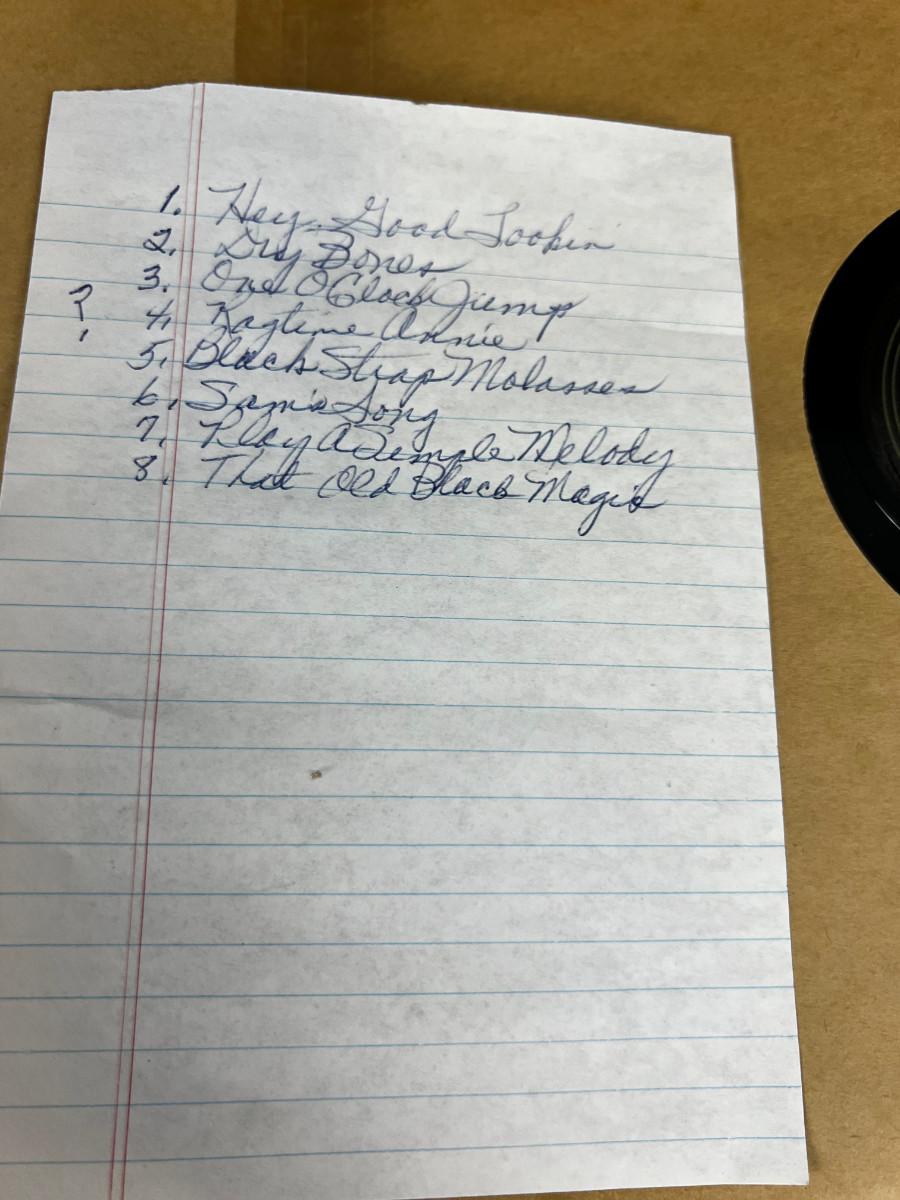 1. Hey, Good Lookin
2. Dry Bones
3. One O'Clock Jump
? 4. Ragtime Annie
5. Black Strap Molasses
6. Sam's Song
7. Play A Simple Melody
8. That Old Black Magic